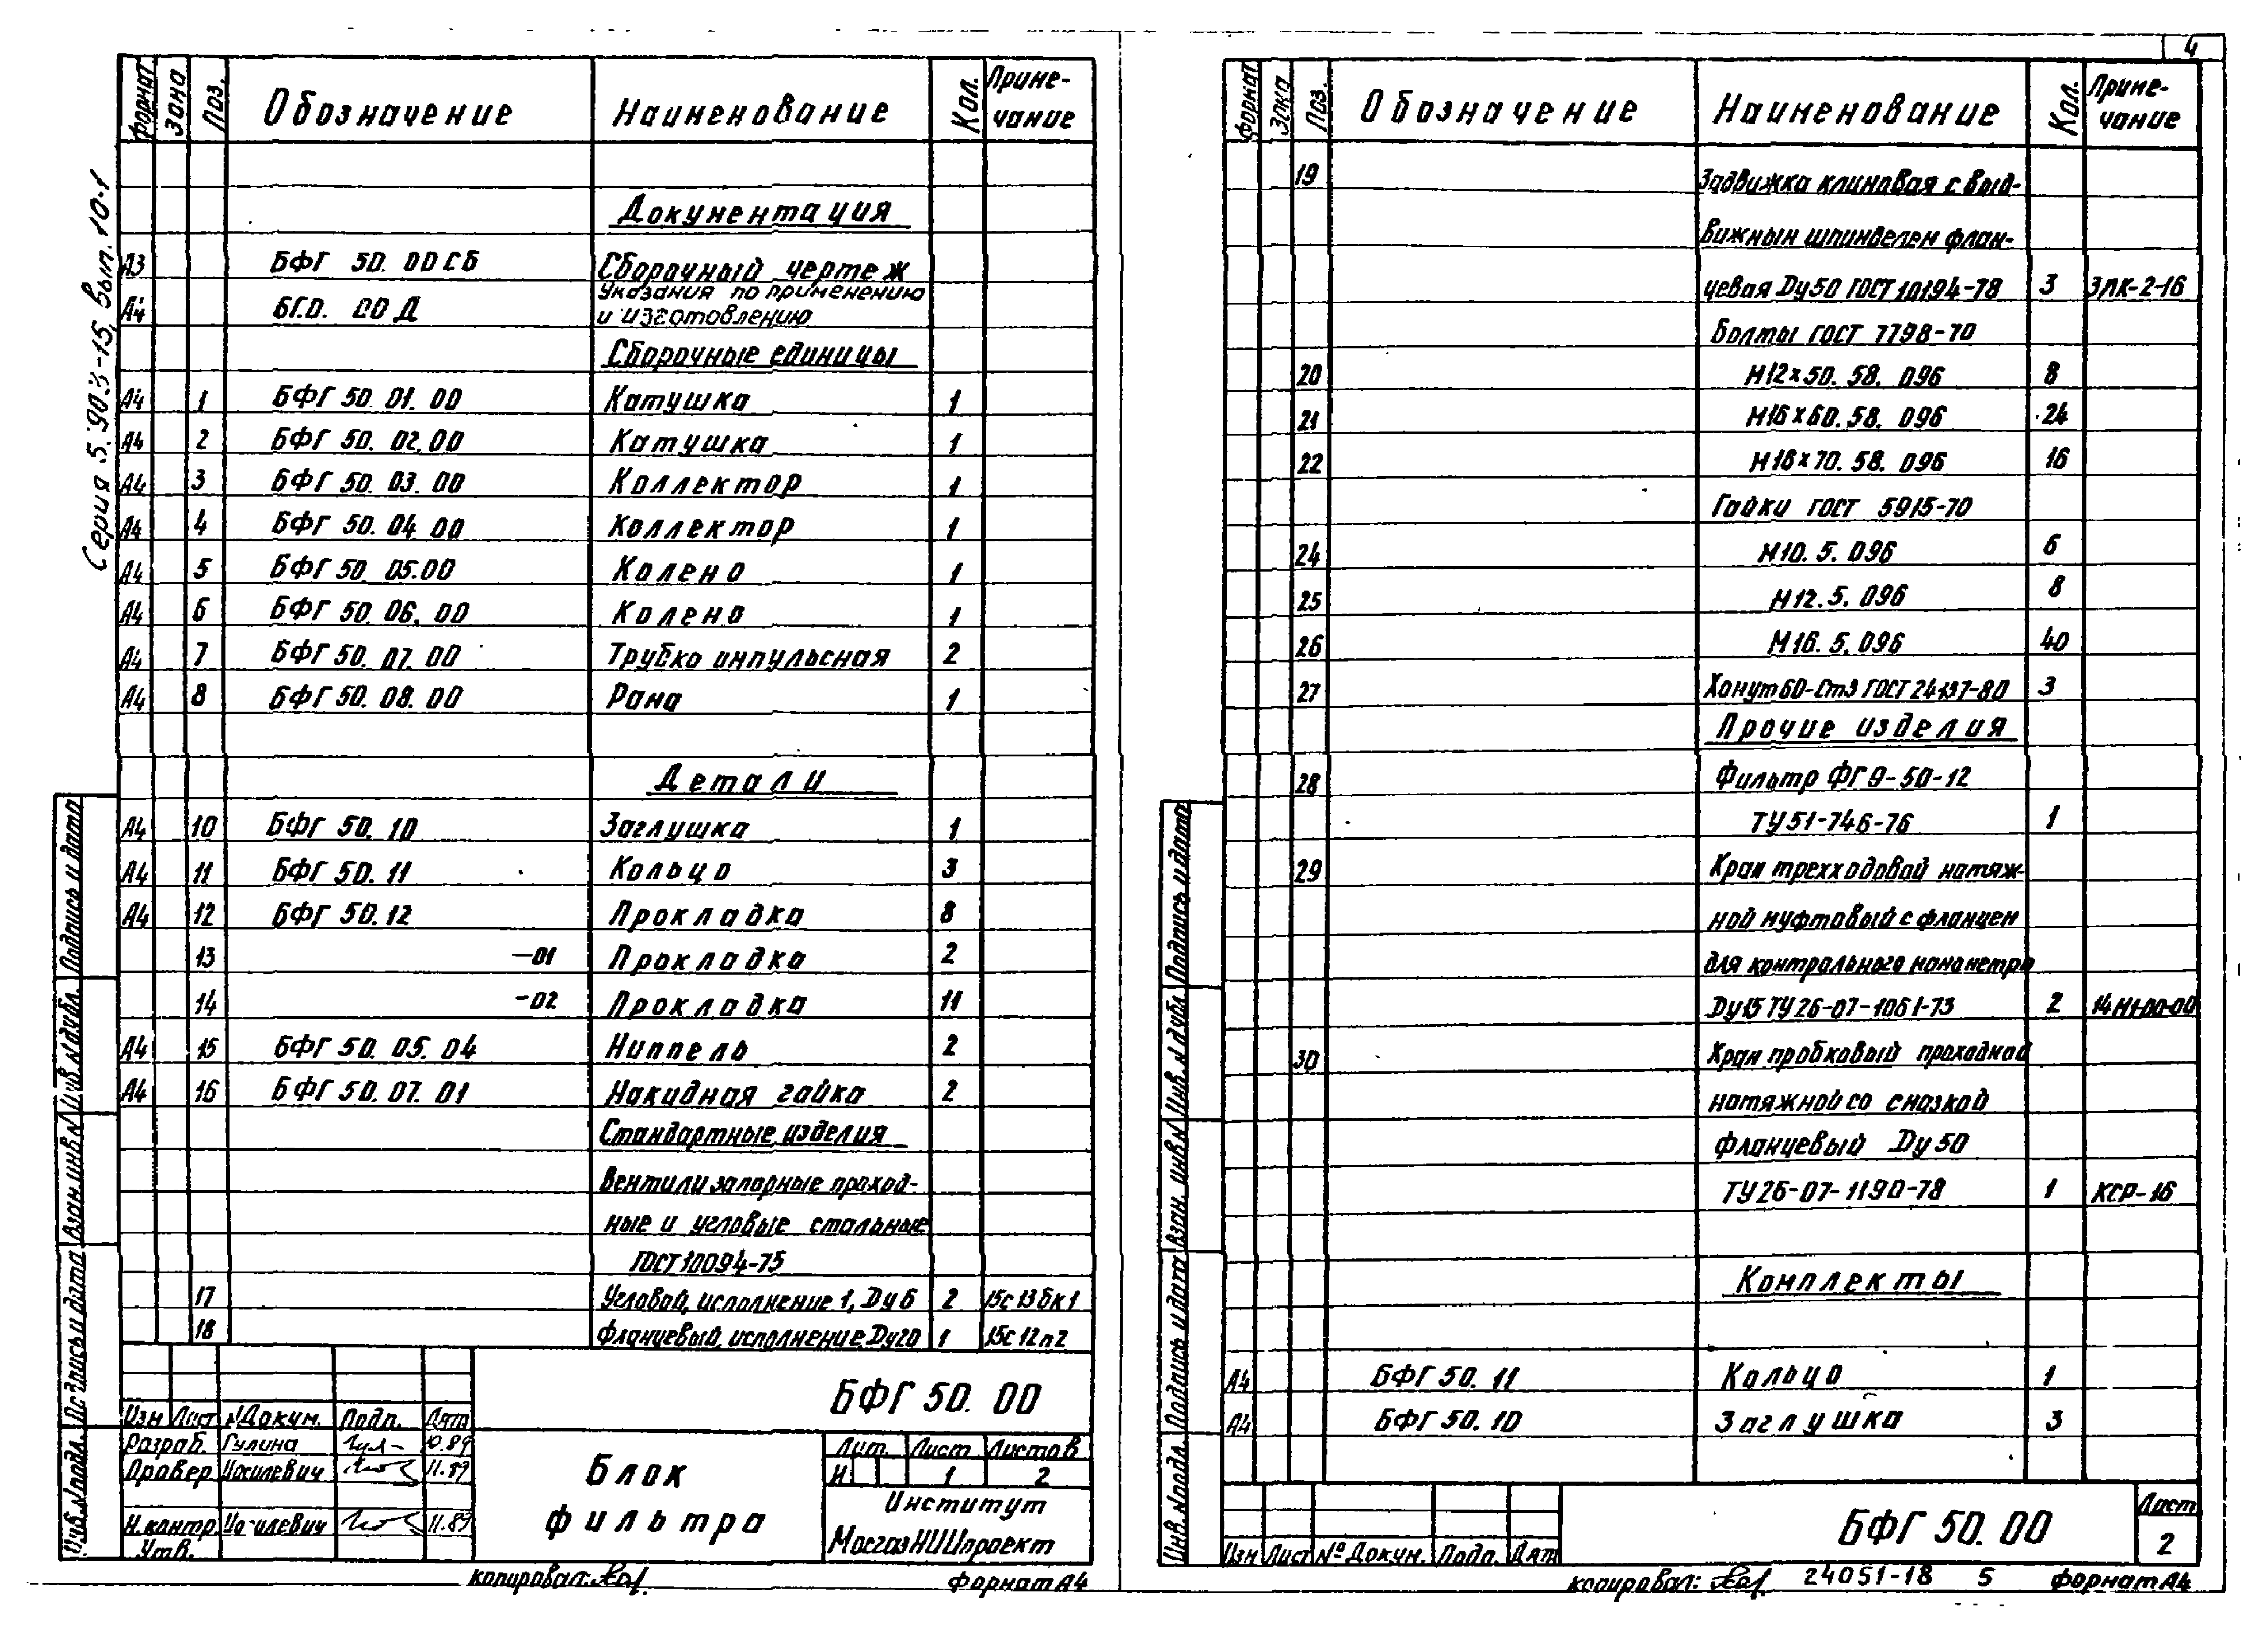 Серия 5.903-15, Вып. 10-1
Формат Зона Поз. Обозначение Наименование Кол. Приме-
чание
Документация
А3 БФГ 50. 00 СБ Сборочный чертеж
А4 БГ.0. 00 Д Указания по применению
и изготовлению
Сборочные единицы
А4 1 БФГ 50. 01. 00 Катушка 1
А4 2 БФГ 50. 02. 00 Катушка 1
А4 3 БФГ 50. 03. 00 Коллектор 1
А4 4 БФГ 50. 04. 00 Коллектор 1
А4 5 БФГ 50. 05.00 Колено 1
А4 6 БФГ 50. 06. 00 Колено 1
А4 7 БФГ 50. 07. 00 Трубка импульсная 2
А4 8 БФГ 50. 08. 00 Рама 1
Детали
А4 10 БФГ 50. 10 Заглушка 1
А4 11 БФГ 50. 11 Кольцо 3
А4 12 БФГ 50. 12 Прокладка 8
13 -01 Прокладка 2
14 -02 Прокладка 11
А4 15 БФГ 50. 05. 04 Ниппель 2
А4 16 БФГ 50. 07. 01 Накидная гайка 2
Стандартные изделия
Вентили запорные проход-
ные и угловые стальные
ГОСТ 10094-75
17 Угловой, исполнение 1, Dу 6 2 15с 13бк1
18 Фланцевый, исполнение, Dу20 1 15с 12п2
БФГ 50. 00
Изм Лист № Докум. Подп. Дата
Разраб. Гулина 10.89
Провер Иосилевич 11.89
Н.контр Иосилевич 11.89
Утв.
Блок
фильтра
Лит. Лист Листов
И 1 2
Институт
МосгазНИИпроект
Подпись и дата
Инв. № дубл.
Взам. инв. №
Подпись и дата
Инв. № подл.
копировал:
Формат А4
4
Формат Зона Поз. Обозначение Наименование Кол. Приме-
чание
19 Задвижка клиновая с выд-
вижным шпинделем флан-
цевая Dу50 ГОСТ 10194-78 3 ЗЛК-2-16
Болты ГОСТ 7798-70
20 М12×50. 58. 096 8
21 М16×60. 58. 096 24
22 М16×70. 58. 096 16
Гайки ГОСТ 5915-70
24 М10. 5. 096 6
25 М12. 5. 096 8
26 М16. 5. 096 40
27 Хомут 60-Ст3 ГОСТ 24137-80 3
Прочие изделия
28 Фильтр ФГ 9-50-12
ТУ 51-746-76 1
29 Кран трехходовой натяж-
ной муфтовый с фланцем
для контрольного манометра
Dу15 ТУ 26-07-1061-73 2 14М1-00-00
30 Кран пробковый проходной
натяжной со смазкой
фланцевый Dу 50
ТУ 26-07-1190-78 1 КСР-16
Комплекты
А4 БФГ 50. 11 Кольцо 1
А4 БФГ 50. 10 Заглушка 3
БФГ 50. 00
Лист
2
Изм Лист № Докум. Подп. Дата
Подпись и дата
Инв. № дубл.
Взам. инв. №
Подпись и дата
Инв. № подл.
копировал: 24051-18 5 Формат А4